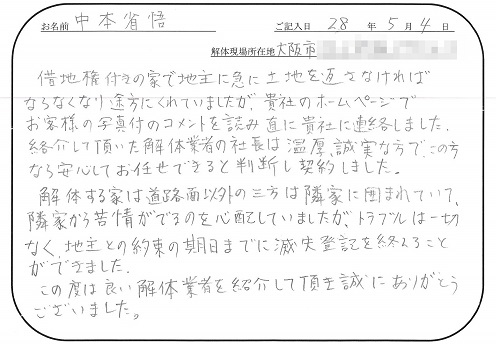 お名前 中本省悟 ご記入日 28 年 5 月 4 日
解体現場所在地 大阪市
借地権付きの家で地主に急に土地を返さなければ
ならなくなり途方にくれていましたが、貴社のホームページで
お客様の写真付のコメントを読み直に貴社に連絡しました.
紹介して頂いた解体業者の社長は温厚、誠実な方でこの方
なら安心してお任せできると判断し契約しました。
解体する家は道路面以外の三方は隣家に囲まれていて、
隣家から苦情がでるのを心配していましたが、トラブルは一切
なく、地主との約束の期日までに滅失登記を終えること
ができました.
この度は良い解体業者を紹介して頂き誠にありがとう
ございました。